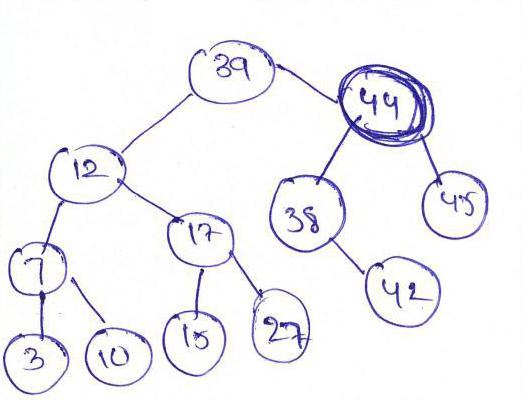 39
44
12
38
45
17
7
42
3
10
15
27